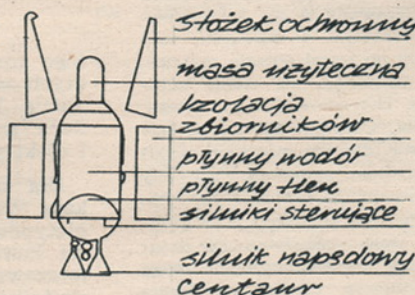 stożek ochronny
masa użyteczna
izolacja
zbiorników
płynny wodór
płynny tlen
silniki sterujące
silnik napędowy
Centaur